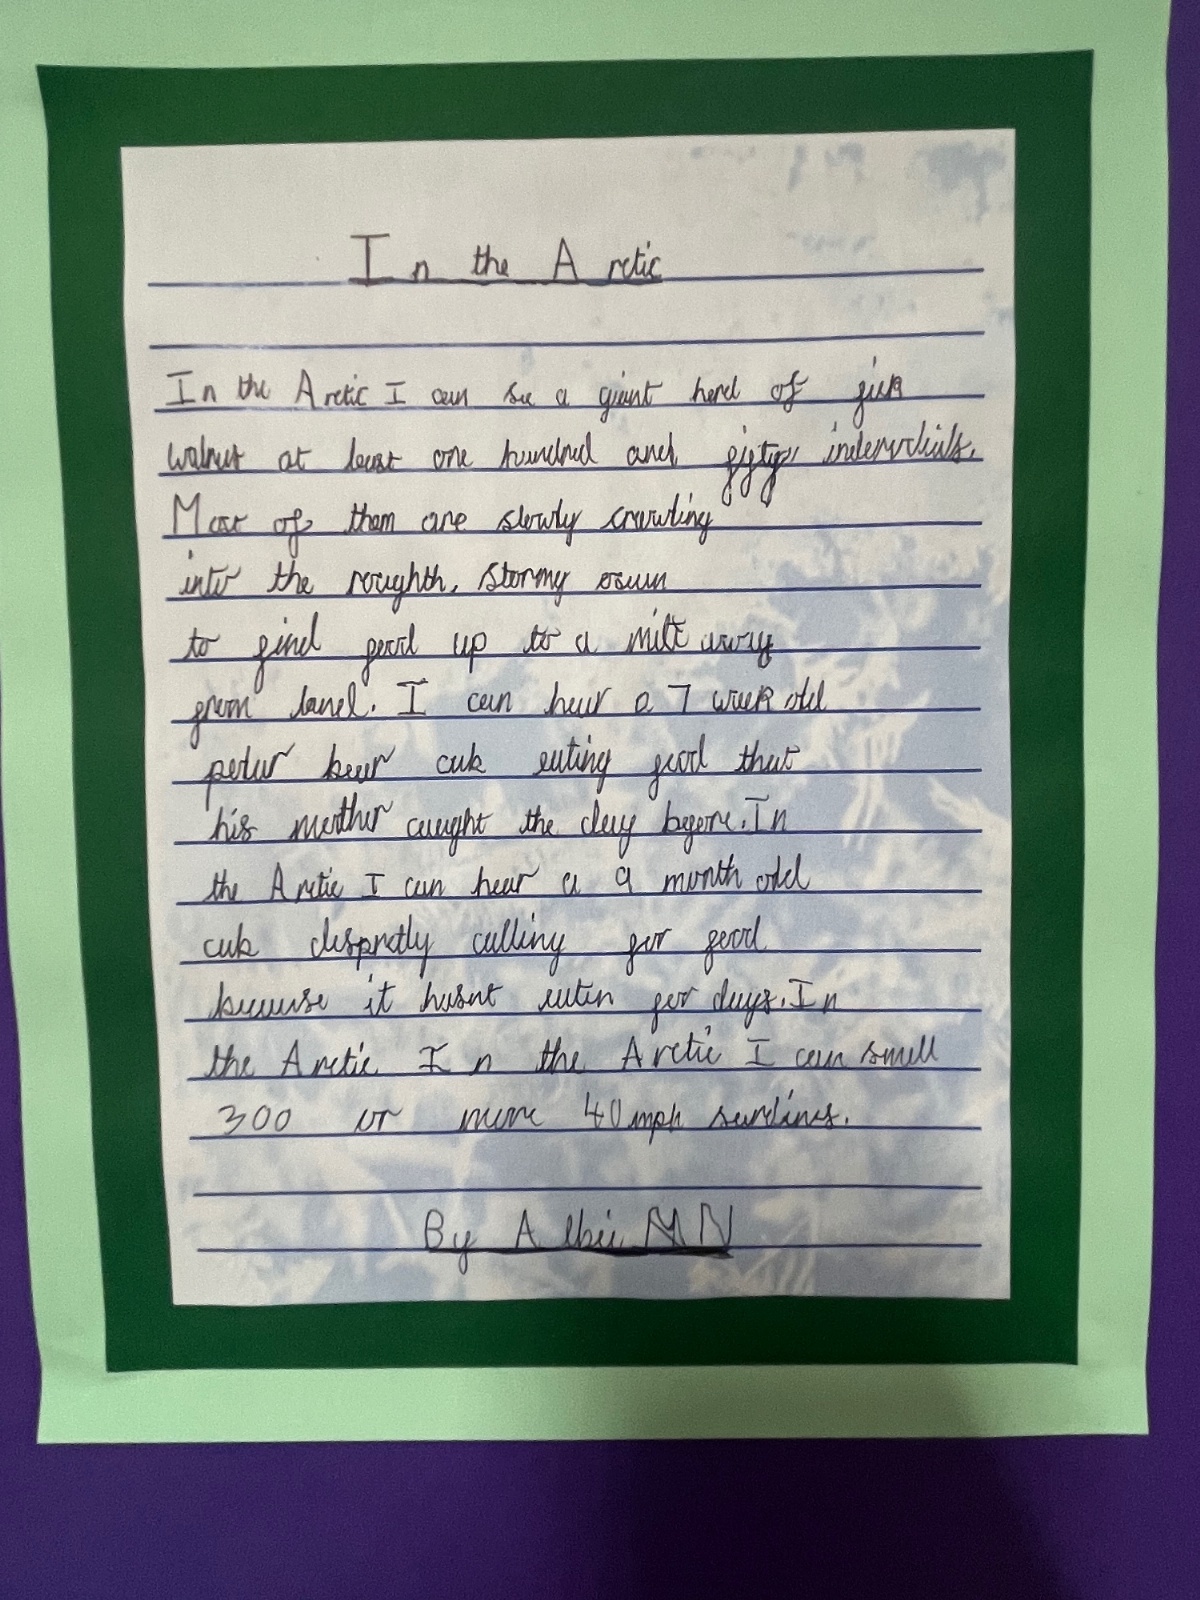 In the Arctic
In the Arctic I can see a giant herd of
walrus at least one hundred and fifty indervdials.
Most of them are slowly crawling
into the roughth, stormy
to find food up to a mile away
from land. I can hear a 7 week old
polar bear cub eating food that
his mother caught the day before. In
the Arctic I can hear a 9 month old
cub despratly calling for food
because it hasnt eaten for days. In
the Arctic In the Arctic I can smell
300 or more 40mph sardines.
By Albie MN